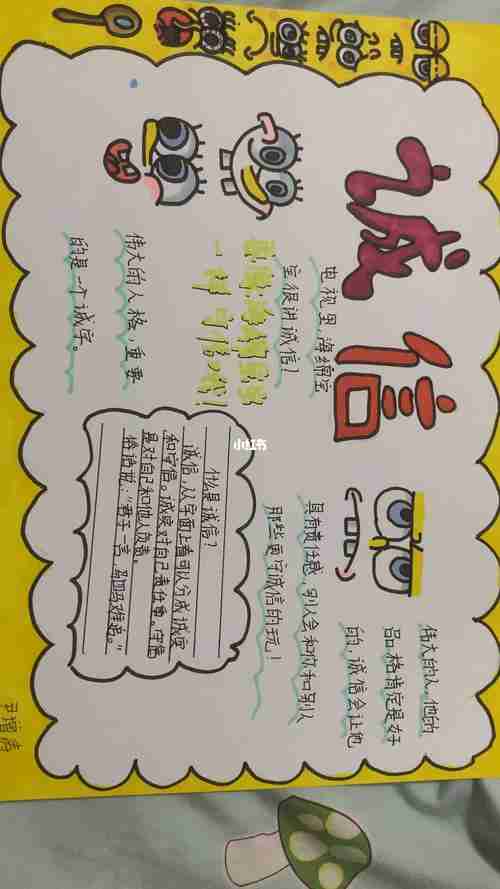 诚信
电视里,海绵宝
宝很讲诚信!
要像海绵宝宝
一样守信哦!
伟大的人格,重要
的是一个诚字。
伟大的人,他的
品格肯定是好
的,诚信会让他
具有责任感,别人会和你和别人
那些更守诚信的玩!
什么是诚信?
诚信,从字面上看可以分成诚实
和守信。诚实对自己责任重。守信
是对自己和他人负责。
俗话说:“君子一言,驷马难追。”
小红书